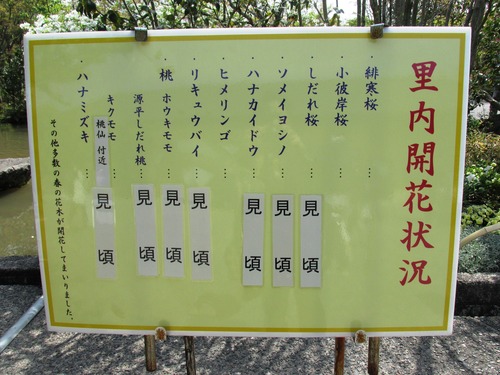 里内開花状況
・緋寒桜 …
・小彼岸桜 …
・しだれ桜 … 見頃
・ソメイヨシノ … 見頃
・ハナカイドウ … 見頃
・ヒメリンゴ …
・リキュウバイ … 見頃
・桃 ホウキモモ … 見頃
源平しだれ桃 … 見頃
キクモモ 桃仙付近 … 見頃
・ハナミズキ …
その他多数の春の花木が開花してまいりました。